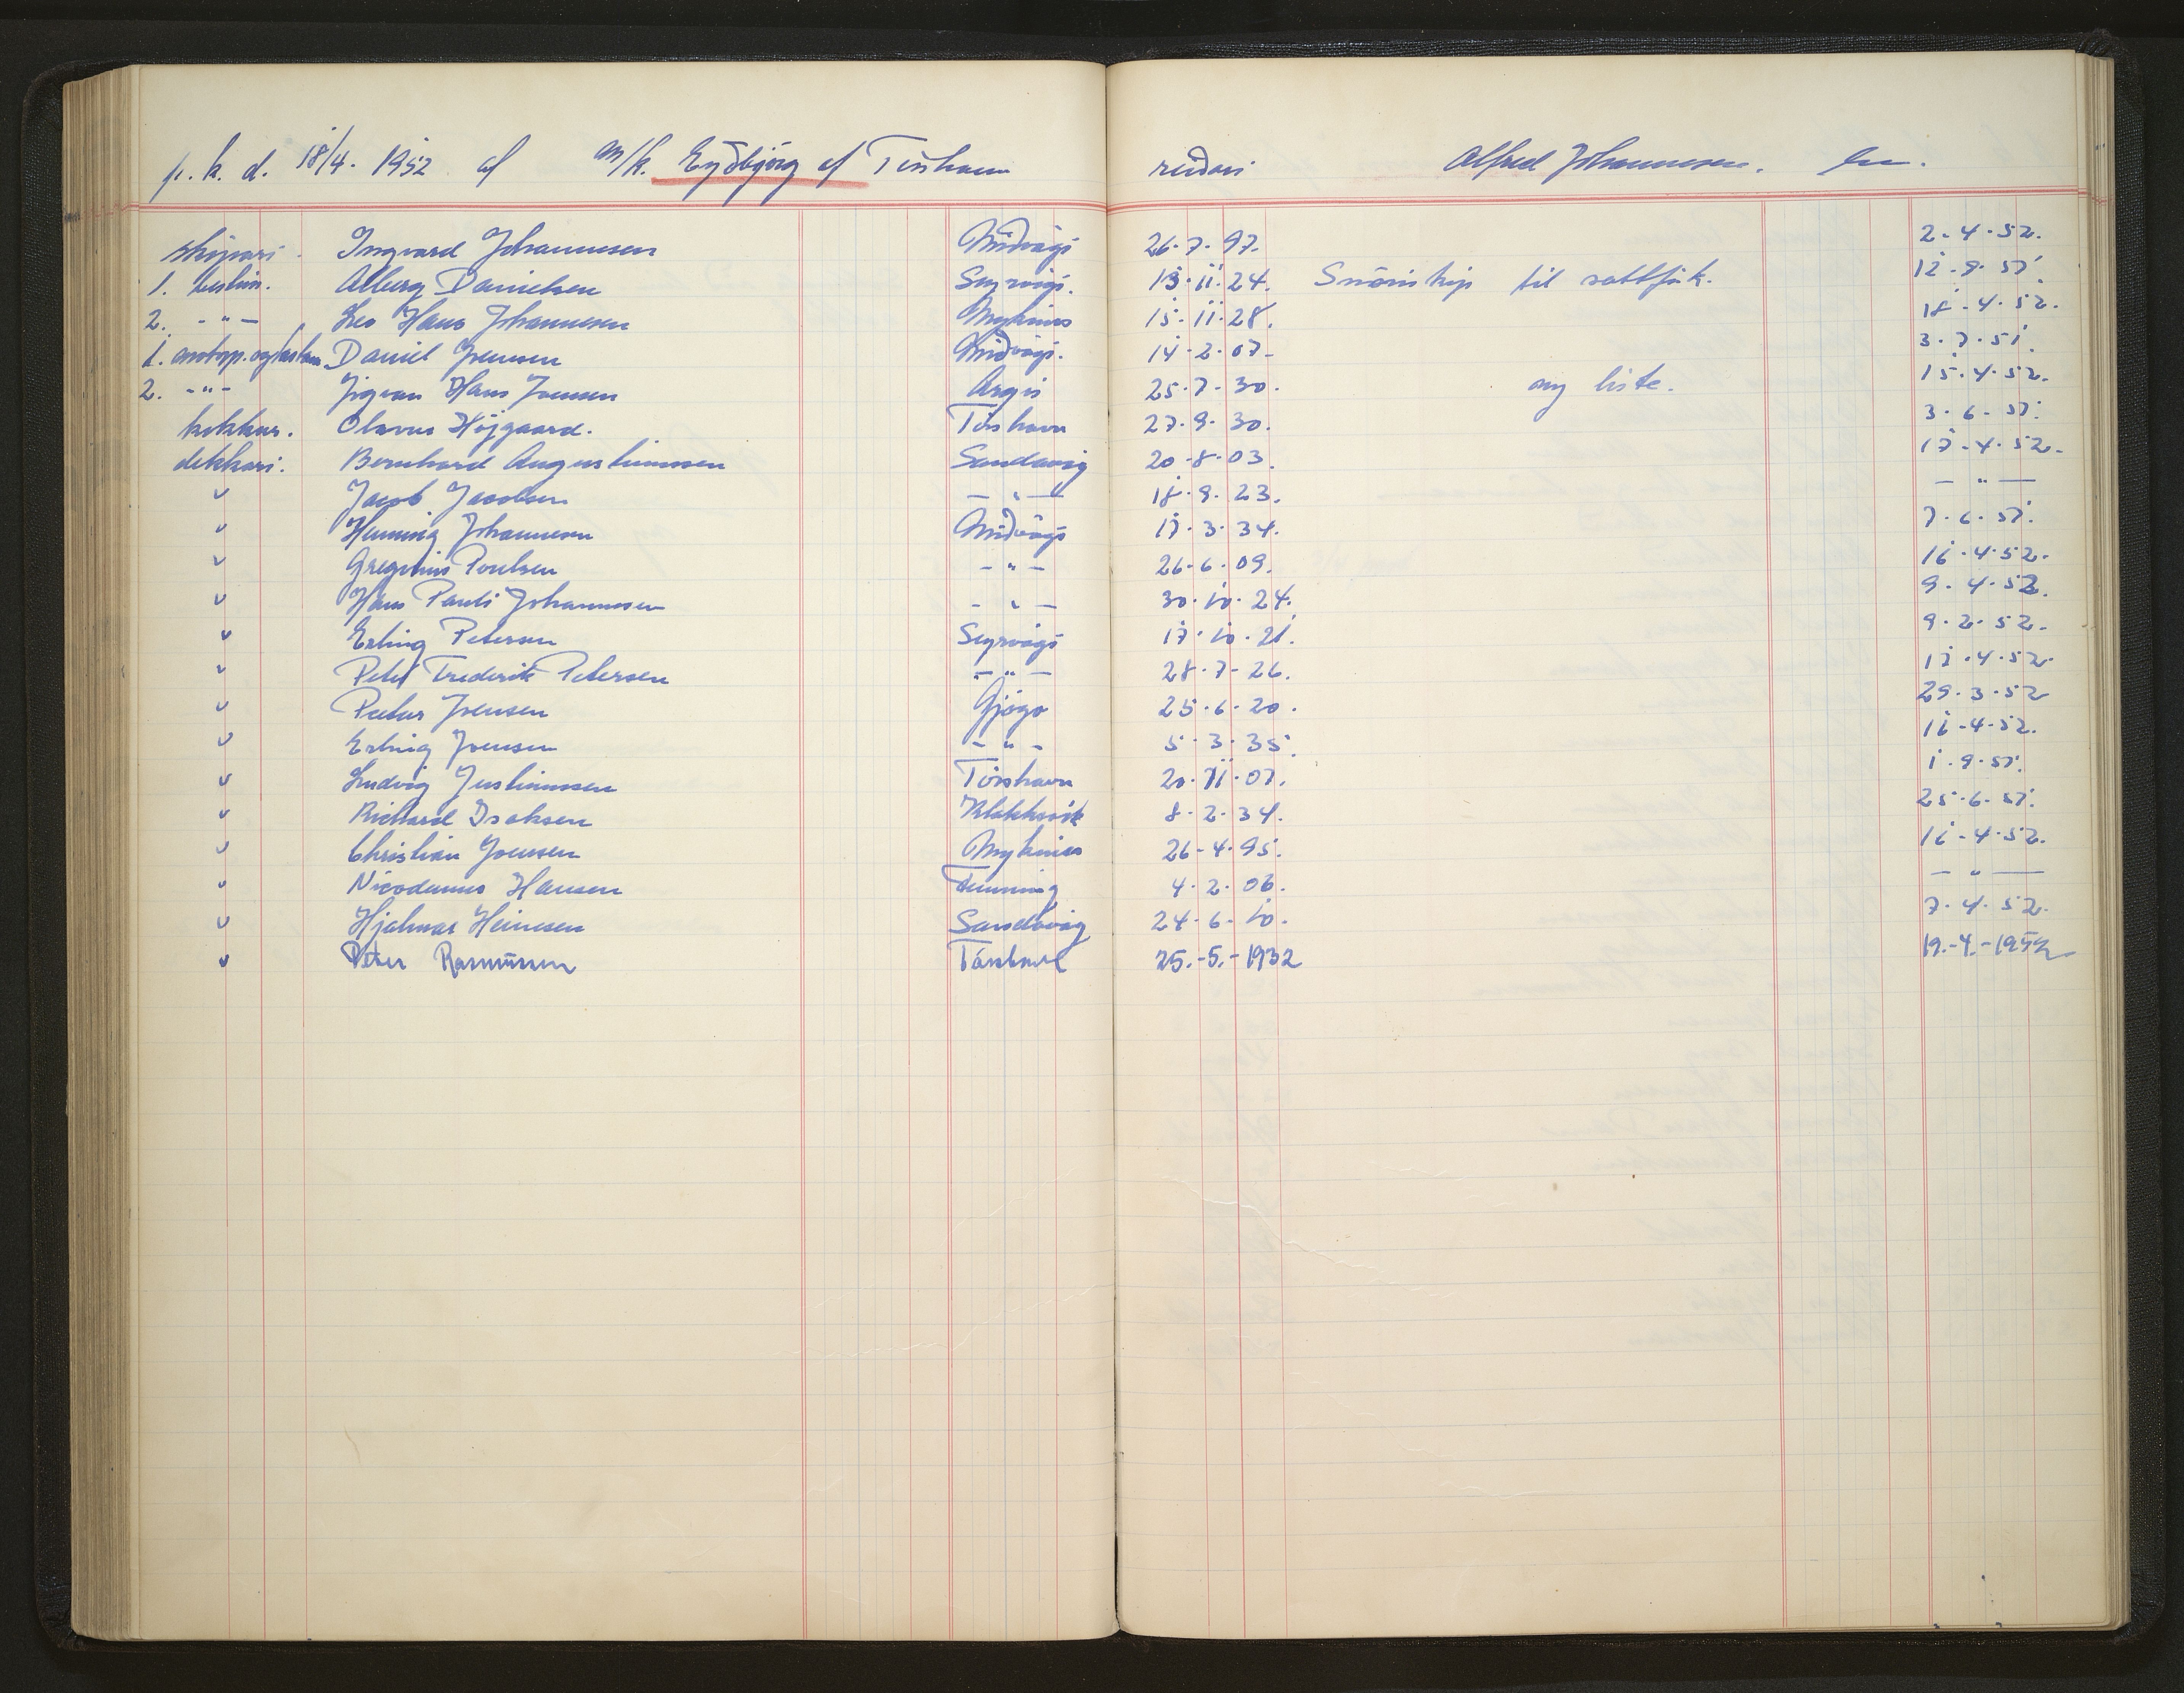 p. k. d. 18/4. 1952 af m/k. Eyðbjørg af Tórshavn reiðari Alfred Johannesen.
skipari. Ingvard Johannesen Miðvági 26-7-97. 2-4-52.
1. bestim. Alberg Danielsen Sørvági. 13-11-24. Snøriskip til saltfisk. 12-9-51.
2. -"- Leo Hans Johannesen Mykines 15-11-28. 18-4-52.
1. motorp. og bestim. Daniel Joensen Miðvági. 14-2-07- 3-7-51.
2. -"- Jógvan Hans Joensen Argir 25-7-30. ny liste. 15-4-52.
kokkur. Olavur Højgaard. Tórshavn 27-9-30. 3-6-51.
dekkari. Bernhard Augustinussen Sandavág 20-8-03. 17-4-52-
v Jacob Jacobsen -"- 18-9-23. -"-
v Henning Johannesen Miðvági 17-3-34. 7-6-51.
v Gregorius Poulsen -"- 26-6-09. 16-4-52-
v Hans Pauli Johannesen -"- 30-10-24. 9-4-52.
v Erling Petersen Sørvági 17-10-21. 9-2-52-
v Peter Frederik Petersen -"- 28-7-26. 17-4-52-
v Petur Joensen Gjógv 25-6-20. 29-3-52
v Erling Joensen -"- 5-3-35. 16-4-52.
v Ludvig Justinussen Tórshavn 20-11-07. 1-9-51.
v Richard Isaksen Klakksvík 8-2-34. 25-6-51.
v Christian Joensen Mykines 26-4-95. 16-4-52.
v Nicodemus Hansen Famming 4-2-06. -"-
v Hjalmar Heinesen Sandavág 24-6-10. 7-4-52-
v Peter Rasmussen Tórshavn 25.-5.-1932 19.-4.-1952